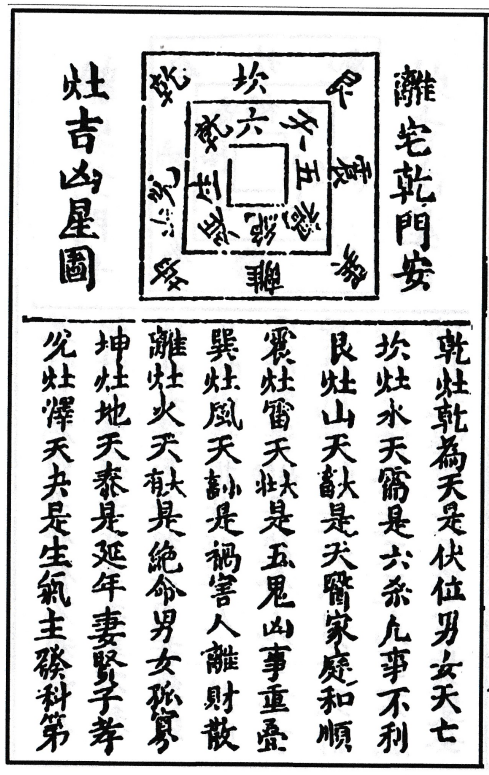 離宅乾門安
乾 坎 艮
震
巽 離 坤
兌
乾 六 天
五
禍 絕 延
生
灶吉凶星圖
乾灶乾為天是伏位男女天亡
坎灶水天需是六杀凢事不利
艮灶山天大畜是天醫家庭和順
震灶雷天大壯是五鬼凶事重疊
巽灶風天小畜是禍害人離財散
離灶火天大有是絕命男女孤寡
坤灶地天泰是延年妻賢子孝
兌灶澤天夬是生氣主發科第